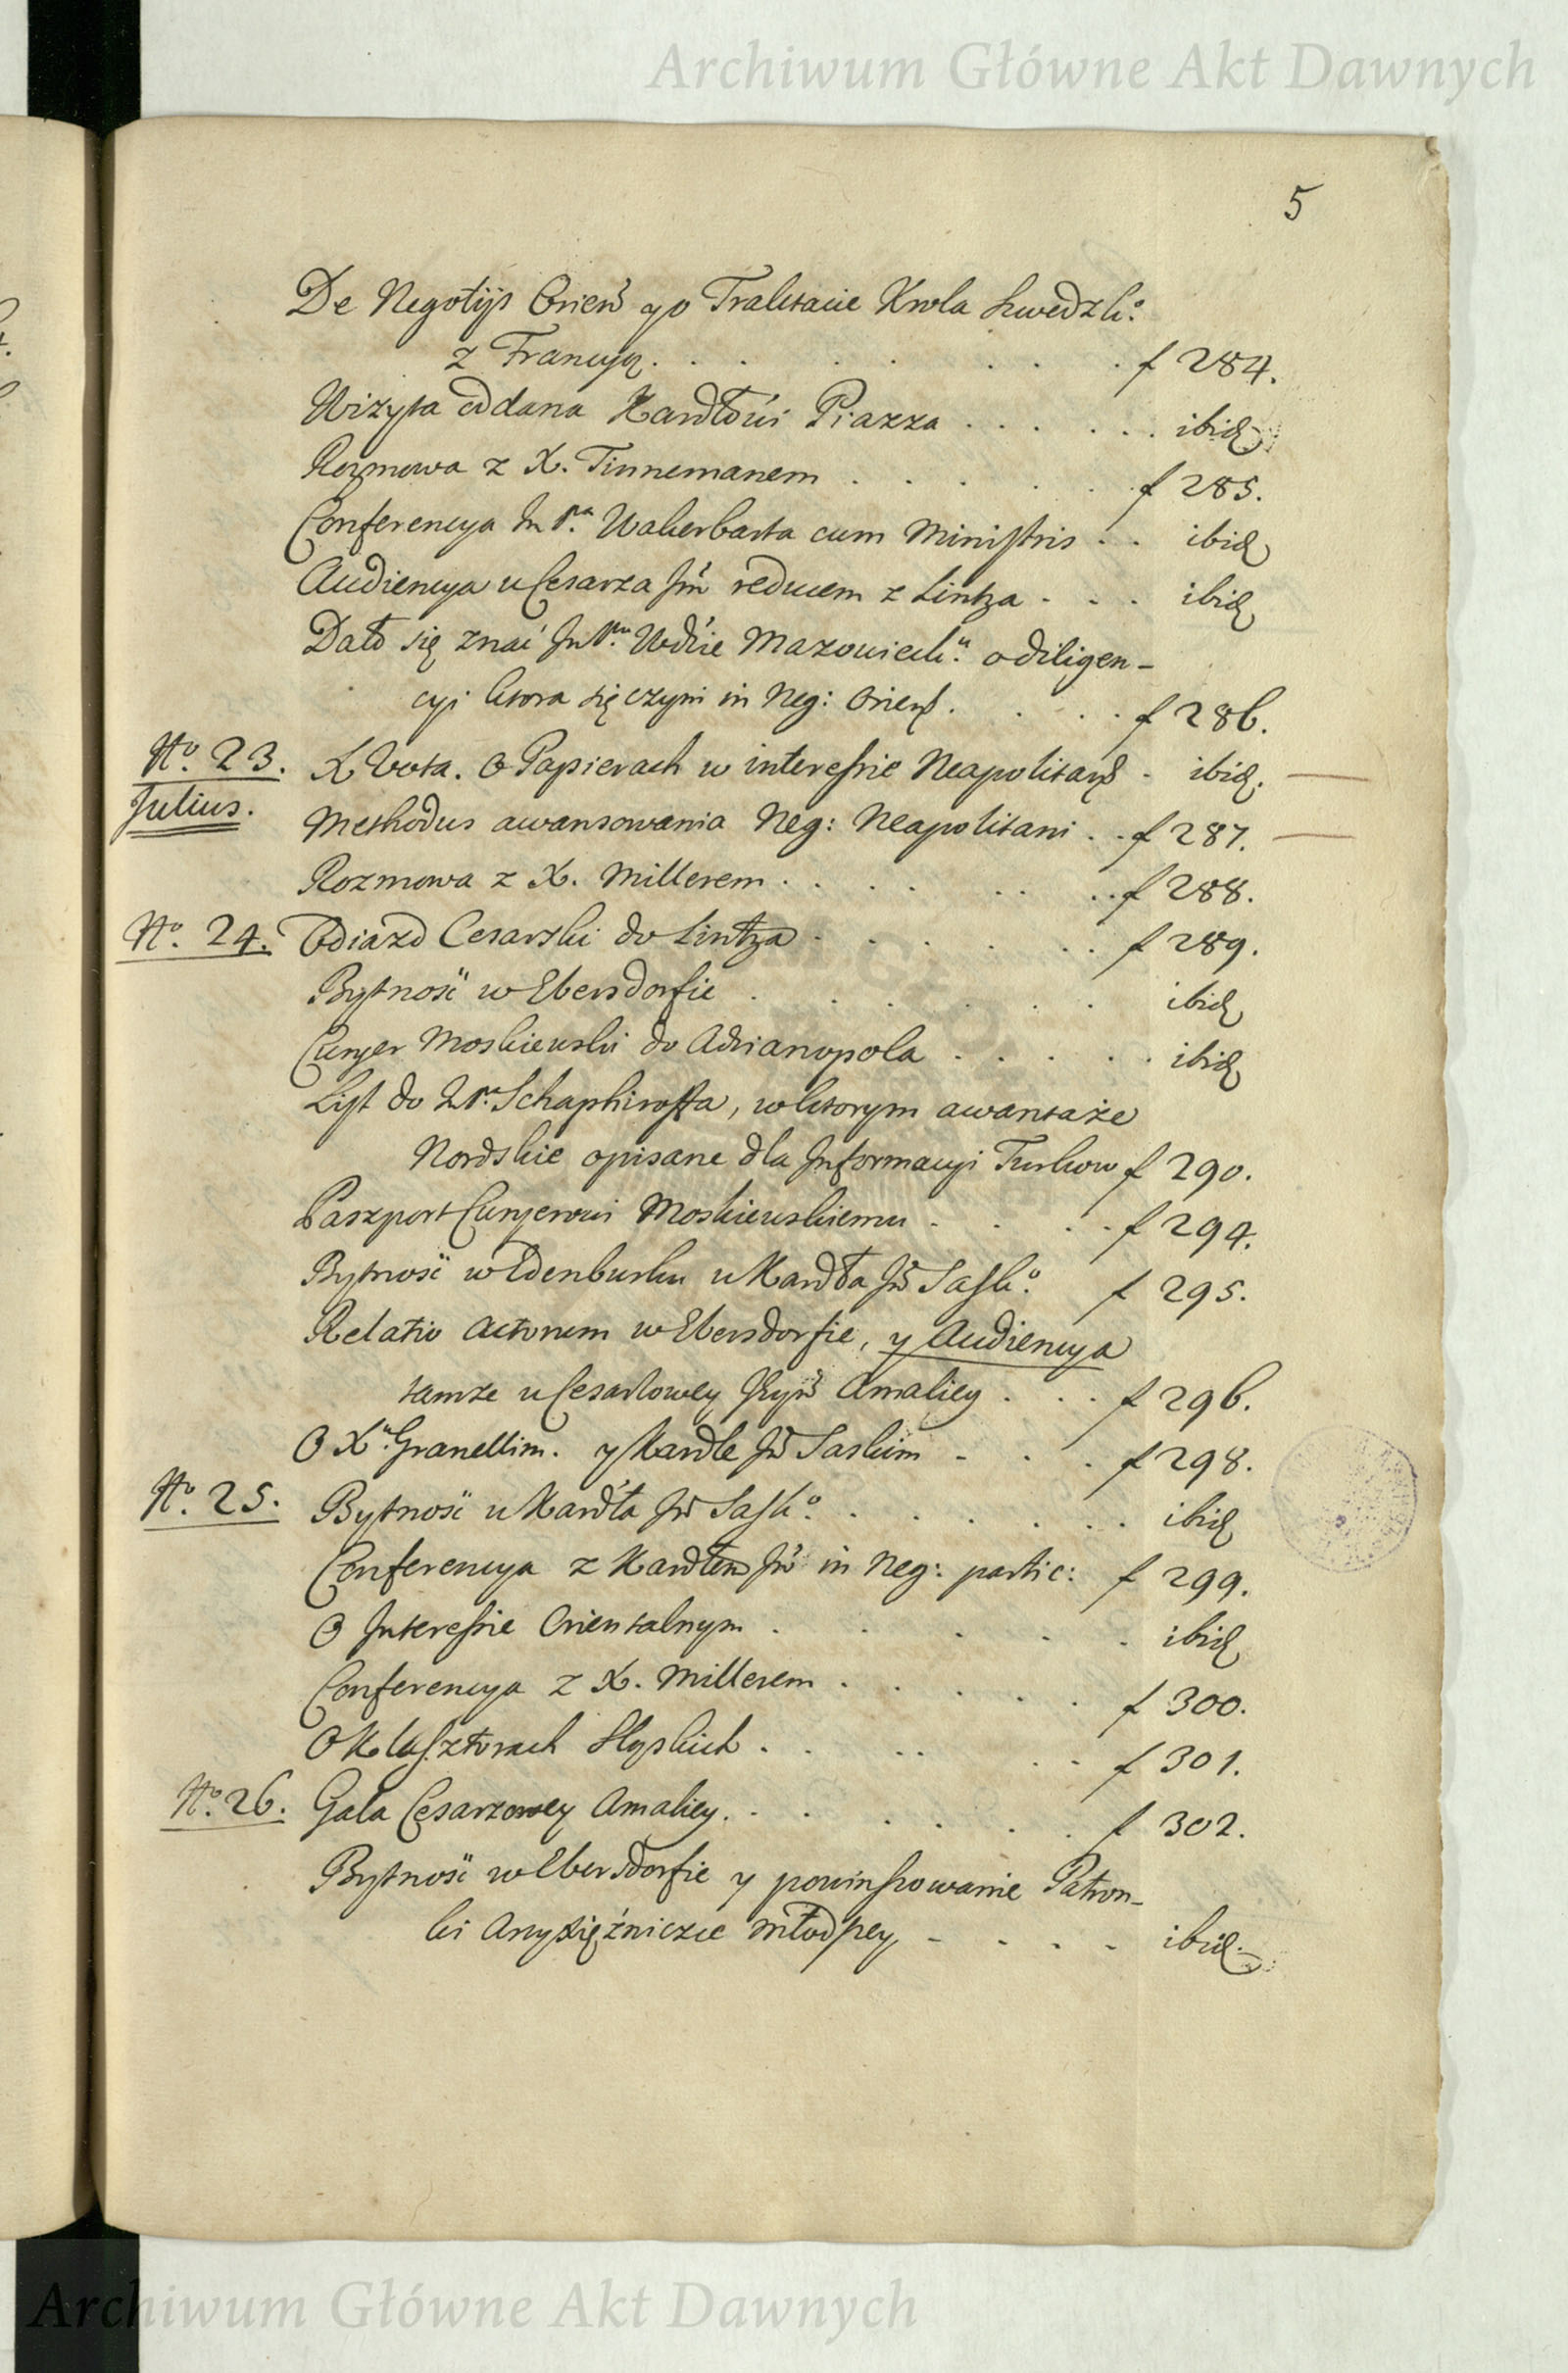 Archiwum Główne Akt Dawnych
5
De Negotijs Orien̄ y o Traktacie Krola Szwedzko
z Francyą . . . . . . f 284.
Wizyta oddana Kardłowi Piazza . . . . . . ibid
Rozmowa z X. Tinnemanem . . . . . . f 285.
Conferencya Im Pa Wakerbarta cum Ministris . . ibid
Audiencya u Cesarza Jm reducem z Lintza . . . ibid
Dało się znać Im Pnu Wdzie Mazowieck: o diligen-
cyi ktora się czyni in Neg: Orient . . . . . f 286.
No. 23. X Vota. O Papierach w interessie Neapolitans . ibid.
Julius. Methodus awansowania Neg: Neapolitani . . f 287.
Rozmowa z X. Millerem . . . . . . f 288.
No. 24. Odiazd Cesarski do Lintza . . . . . . f 289.
Bytność w Ebersdorfie . . . . . . ibid
Curyer Moskiewski do Adrianopola . . . . . ibid
List do Schaphiroffa, w ktorym awantaże
Nordskie opisane dla Informacyi Turkow f 290.
Paszport Curyerowi Moskiewskiemu . . . . f 294.
Bytność w Edenburku u Kardła Sasko f 295.
Relatio Actorum w Ebersdorfie, y Audiencya
tamże u Cesarzowey Amaliey . . . f 296.
O Xu Granellim. y Kardle Saskim . . . f 298.
No. 25. Bytność u Kardła Sasko . . . . . . ibid
Conferencya z Kardłem in Neg: partic: f 299.
O Interessie Orientalnym . . . . . ibid
Conferencya z X. Millerem . . . . . f 300.
O Klasztorach Slyskich . . . . . . f 301.
No. 26. Gala Cesarzowey Amaliey. . . . . . . f 302.
Bytność w Ebersdorfie y powinszowanie Patron-
ki Arcyxiężniczce młodszey . . . . ibid.
Archiwum Główne Akt Dawnych